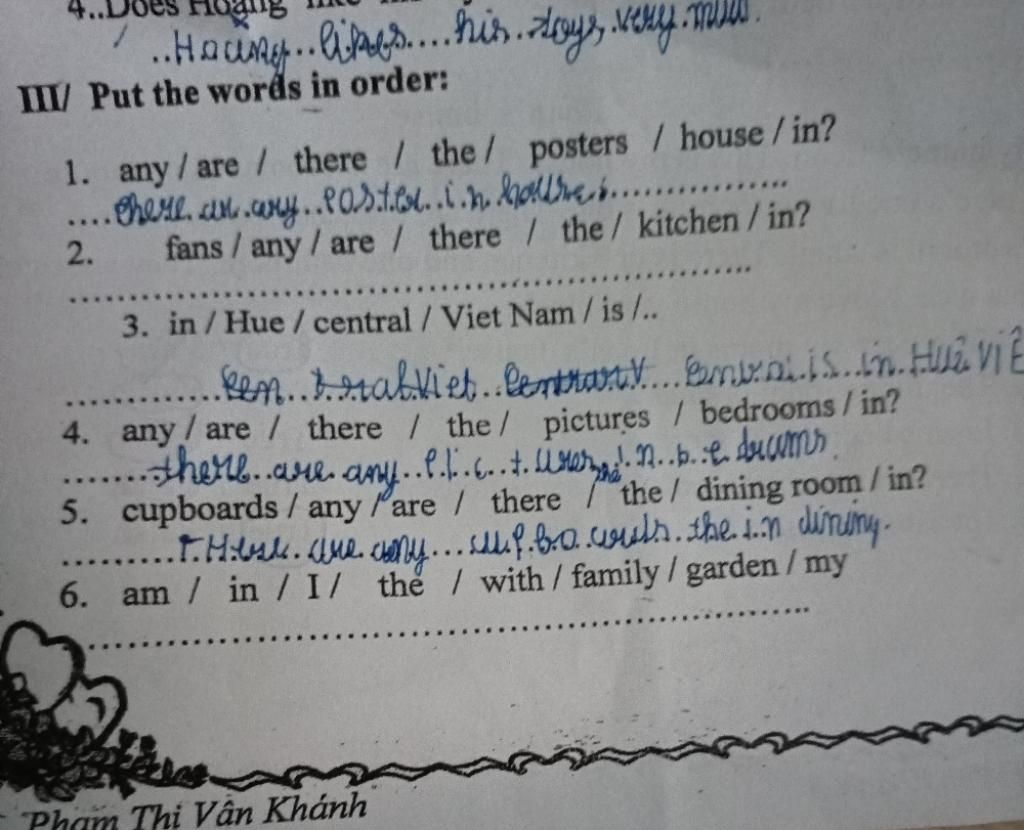 4..Does Hoang like
..Hoang..likes....his..toys, very much.
III/ Put the words in order:
1. any / are / there / the / posters / house / in?
....there are any..poster..i.n house.
2. fans / any / are / there / the / kitchen / in?
3. in / Hue / central / Viet Nam / is /..
is..in.Huế VIÊ
4. any / are / there / the / pictures / bedrooms / in?
there..are any..
5. cupboards / any / are / there / the / dining room / in?
are any... the i.n dining.
6. am / in / I / the / with / family / garden / my
Phạm Thị Vân Khánh